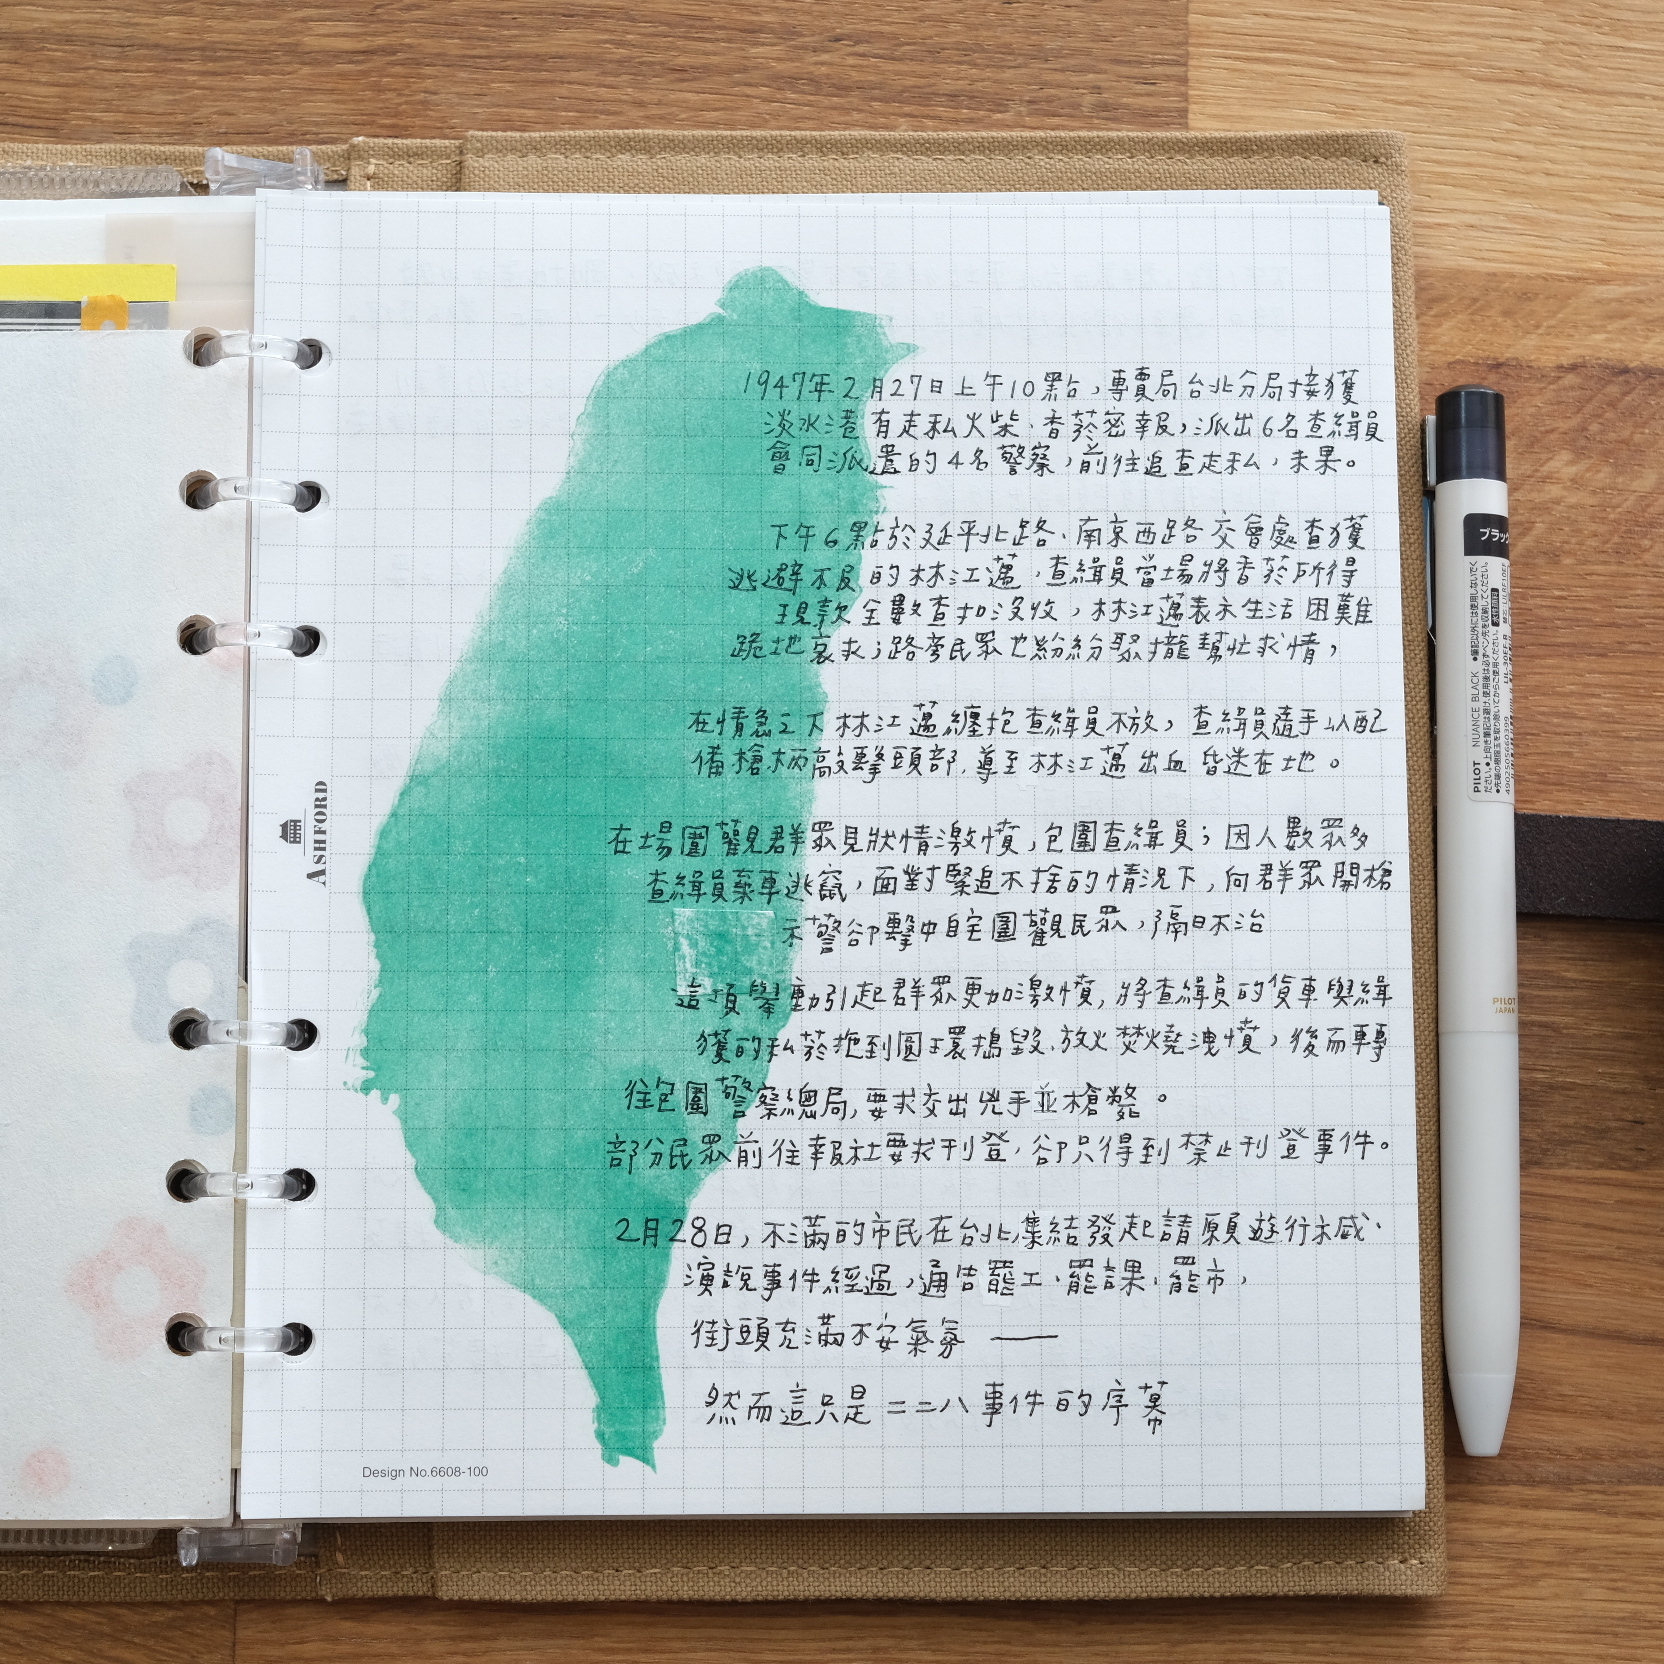 1947年2月27日上午10點，專賣局台北分局接獲
淡水港有走私火柴、香菸密報，派出6名查緝員
會同派遣的4名警察，前往追查走私，未果。
下午6點於延平北路、南京西路交會處查獲
逃避不及的林江邁，查緝員當場將香菸所得
現款全數查扣沒收，林江邁表示生活困難
跪地哀求；路旁民眾也紛紛聚攏幫忙求情，
在情急之下林江邁纏抱查緝員不放，查緝員隨手以配
備槍柄敲擊頭部，導至林江邁出血昏迷在地。
在場圍觀群眾見狀情激憤，包圍查緝員；因人數眾多
查緝員棄車逃竄，面對緊追不捨的情況下，向群眾開槍
示警卻擊中自宅圍觀民眾，隔日不治
這項舉動引起群眾更加激憤，將查緝員的貨車與緝
獲的私菸拖到圓環搗毀、放火焚燒洩憤，後而轉
往包圍警察總局，要求交出兇手並槍斃。
部分民眾前往報社要求刊登，卻只得到禁止刊登事件。
2月28日，不滿的市民在台北集結發起請願遊行示威、
演說事件經過，通告罷工、罷課、罷市，
街頭充滿不安氣氛 ——
然而這只是二二八事件的序幕
ASHFORD
Design No.6608-100
ブラック
PILOT NUANCE BLACK
4902505660399
PILOT
JAPAN